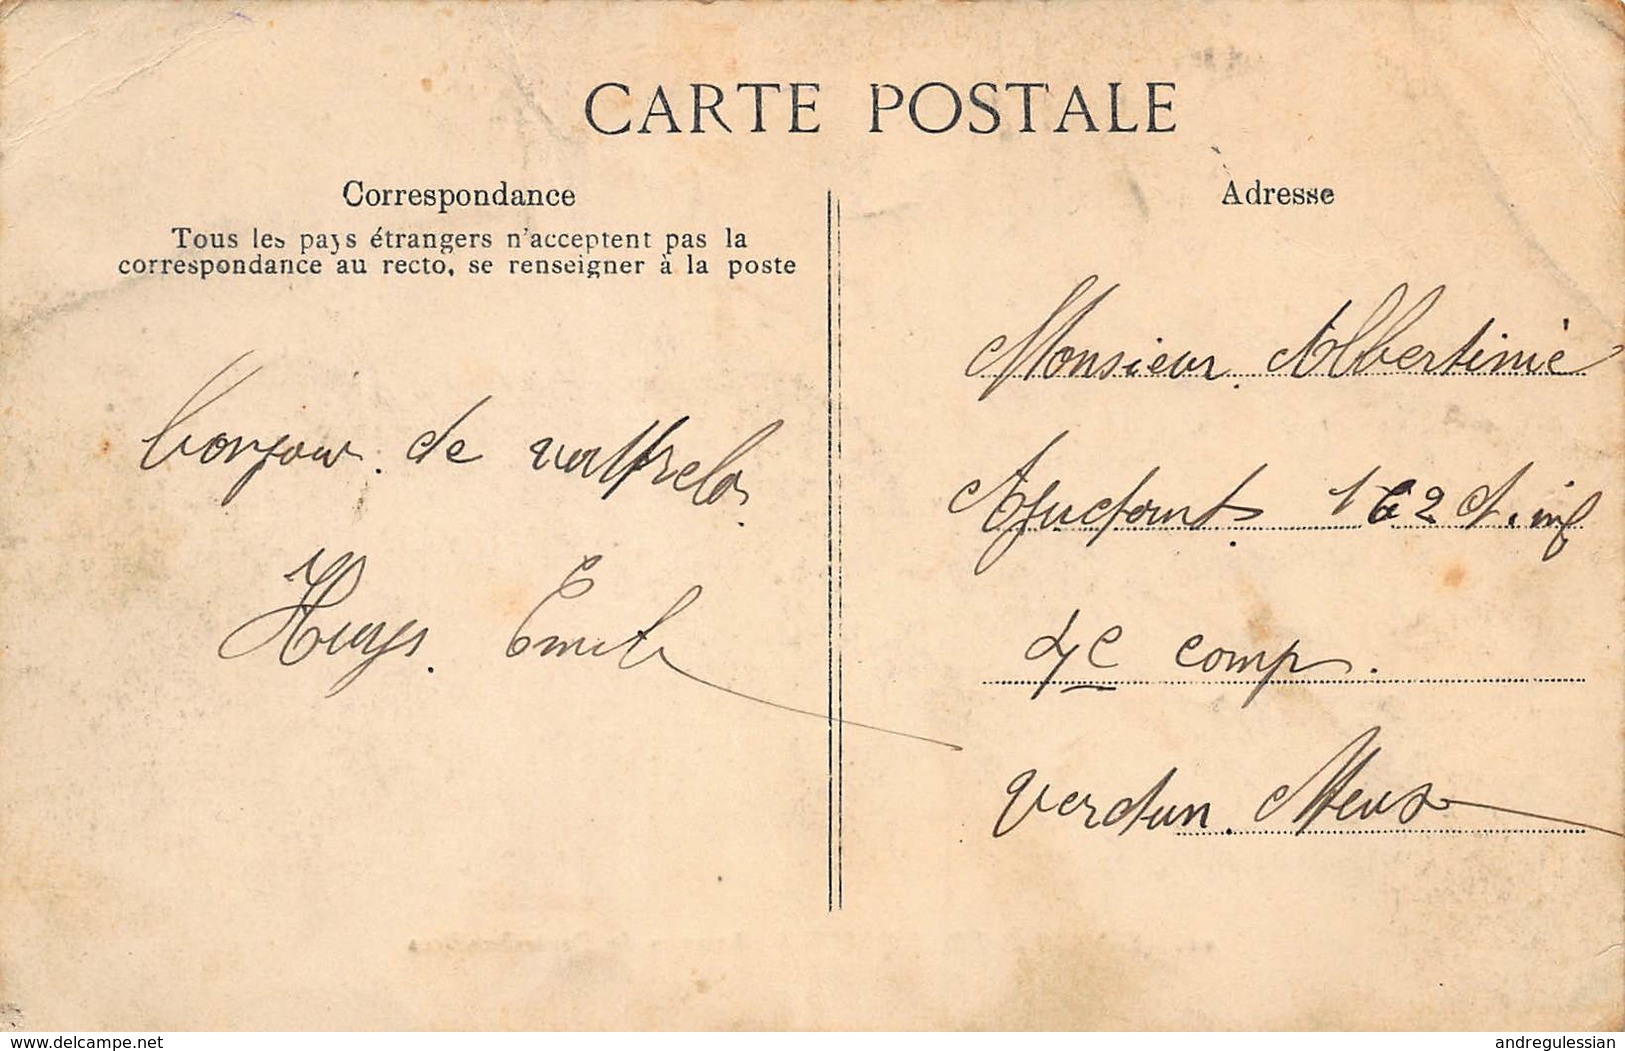 CARTE POSTALE
Correspondance
Tous les pays étrangers n'acceptent pas la
correspondance au recto, se renseigner à la poste
bonjour de
Huys. Emile
Adresse
Monsieur Albertinié
Ajudant 162 d. inf
4e comp.
Verdun. Meuse
www.delcampe.net
andregulessian